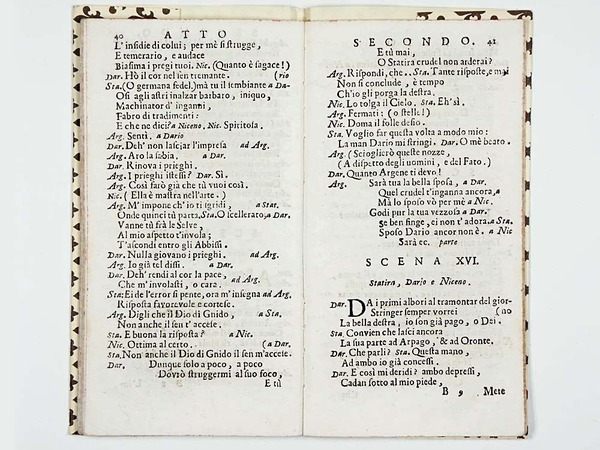 40 ATTO
L' insidie di colui; per mè si strugge,
E temerario, e audace
Biasima i pregi tuoi. Nic. (Quanto è sagace!)
Dar. Hò il cor nel sen tremante. (rio
Sta. (O germana fedel.) mà tu il sembiante a Da-
Osi agli astri inalzar barbaro, iniquo,
Machinator d' inganni,
Fabro di tradimenti:
E che ne dici? a Niceno. Nic. Spiritosa.
Arg. Senti. a Dario
Dar. Deh' non lasciar l'impresa ad Arg.
Arg. Aro la sabia. a Dar.
Dar. Rinova i prieghi.
Arg. I prieghi istessi? Dar. Sì.
Arg. Così farò già che tù vuoi così.
Nic. ( Ella è mastra nell'arte. )
Arg. M' impone ch' io ti sgridi, a Stat.
Onde quinci tù parta. Sta. O scellerato, a Dar.
Vanne tù frà le Selve,
Al mio aspetto t'invola;
T'ascondi entro gli Abbissi.
Dar. Nulla giovano i prieghi. ad Arg.
Arg. Io già tel dissi. a Dar.
Dar. Deh' rendi al cor la pace, ad Arg.
Che m' involasti, o cara.
Sta: Ei de l'error si pente, ora m'insegna ad Arg.
Risposta favorevole e cortese.
Arg. Digli che il Dio di Gnido, a Sta.
Non anche il sen t' accese.
Sta. E buona la risposta? a Nic.
Nic. Ottima al certo. (a Dar.
Sta. Non anche il Dio di Gnido il sen m'accese.
Dar. Dunque solo a poco, a poco
Dovrò struggermi al suo foco,
E tù
SECONDO. 41
E tù mai,
O Statira crudel non arderai?
Arg. Rispondi, che.. Sta. Tante risposte, e mai
Non si conclude, è tempo
Ch'io gli porga la destra.
Nic. Lo tolga il Cielo. Sta. Eh' sì.
Arg. Fermati: (o stelle!)
Nic. Doma il folle desio.
Sta. Voglio far questa volta a modo mio:
La man Dario mi stringi. Dar. O mè beato.
Arg. ( Scioglierò queste nozze,
( A dispetto degli uomini, e del Fato. )
Dar. Quanto Argene ti devo!
Arg. Sarà tua la bella sposa, a Dar.
Quel crudel t'inganna ancora, a
Mà lo sposo vò per mè a Nic
Godi pur la tua vezzosa a Dar.
Se ben finge, ei non t' adora. a Sta.
Sposo Dario ancor non è. a Nic
Sarà ec. parte
SCENA XVI.
Statira, Dario e Niceno.
Dar. DA i primi albori al tramontar del gior-
Stringer sempre vorrei (no
La bella destra, io son già pago, o Dei.
Sta. Convien che lasci ancora
La sua parte ad Arpago, & ad Oronte.
Dar. Che parli? Sta. Questa mano,
Ad ambo io già concessi.
Dar. E così mi deridi? ambo depressi,
Cadan sotto al mio piede,
B 9 Mete